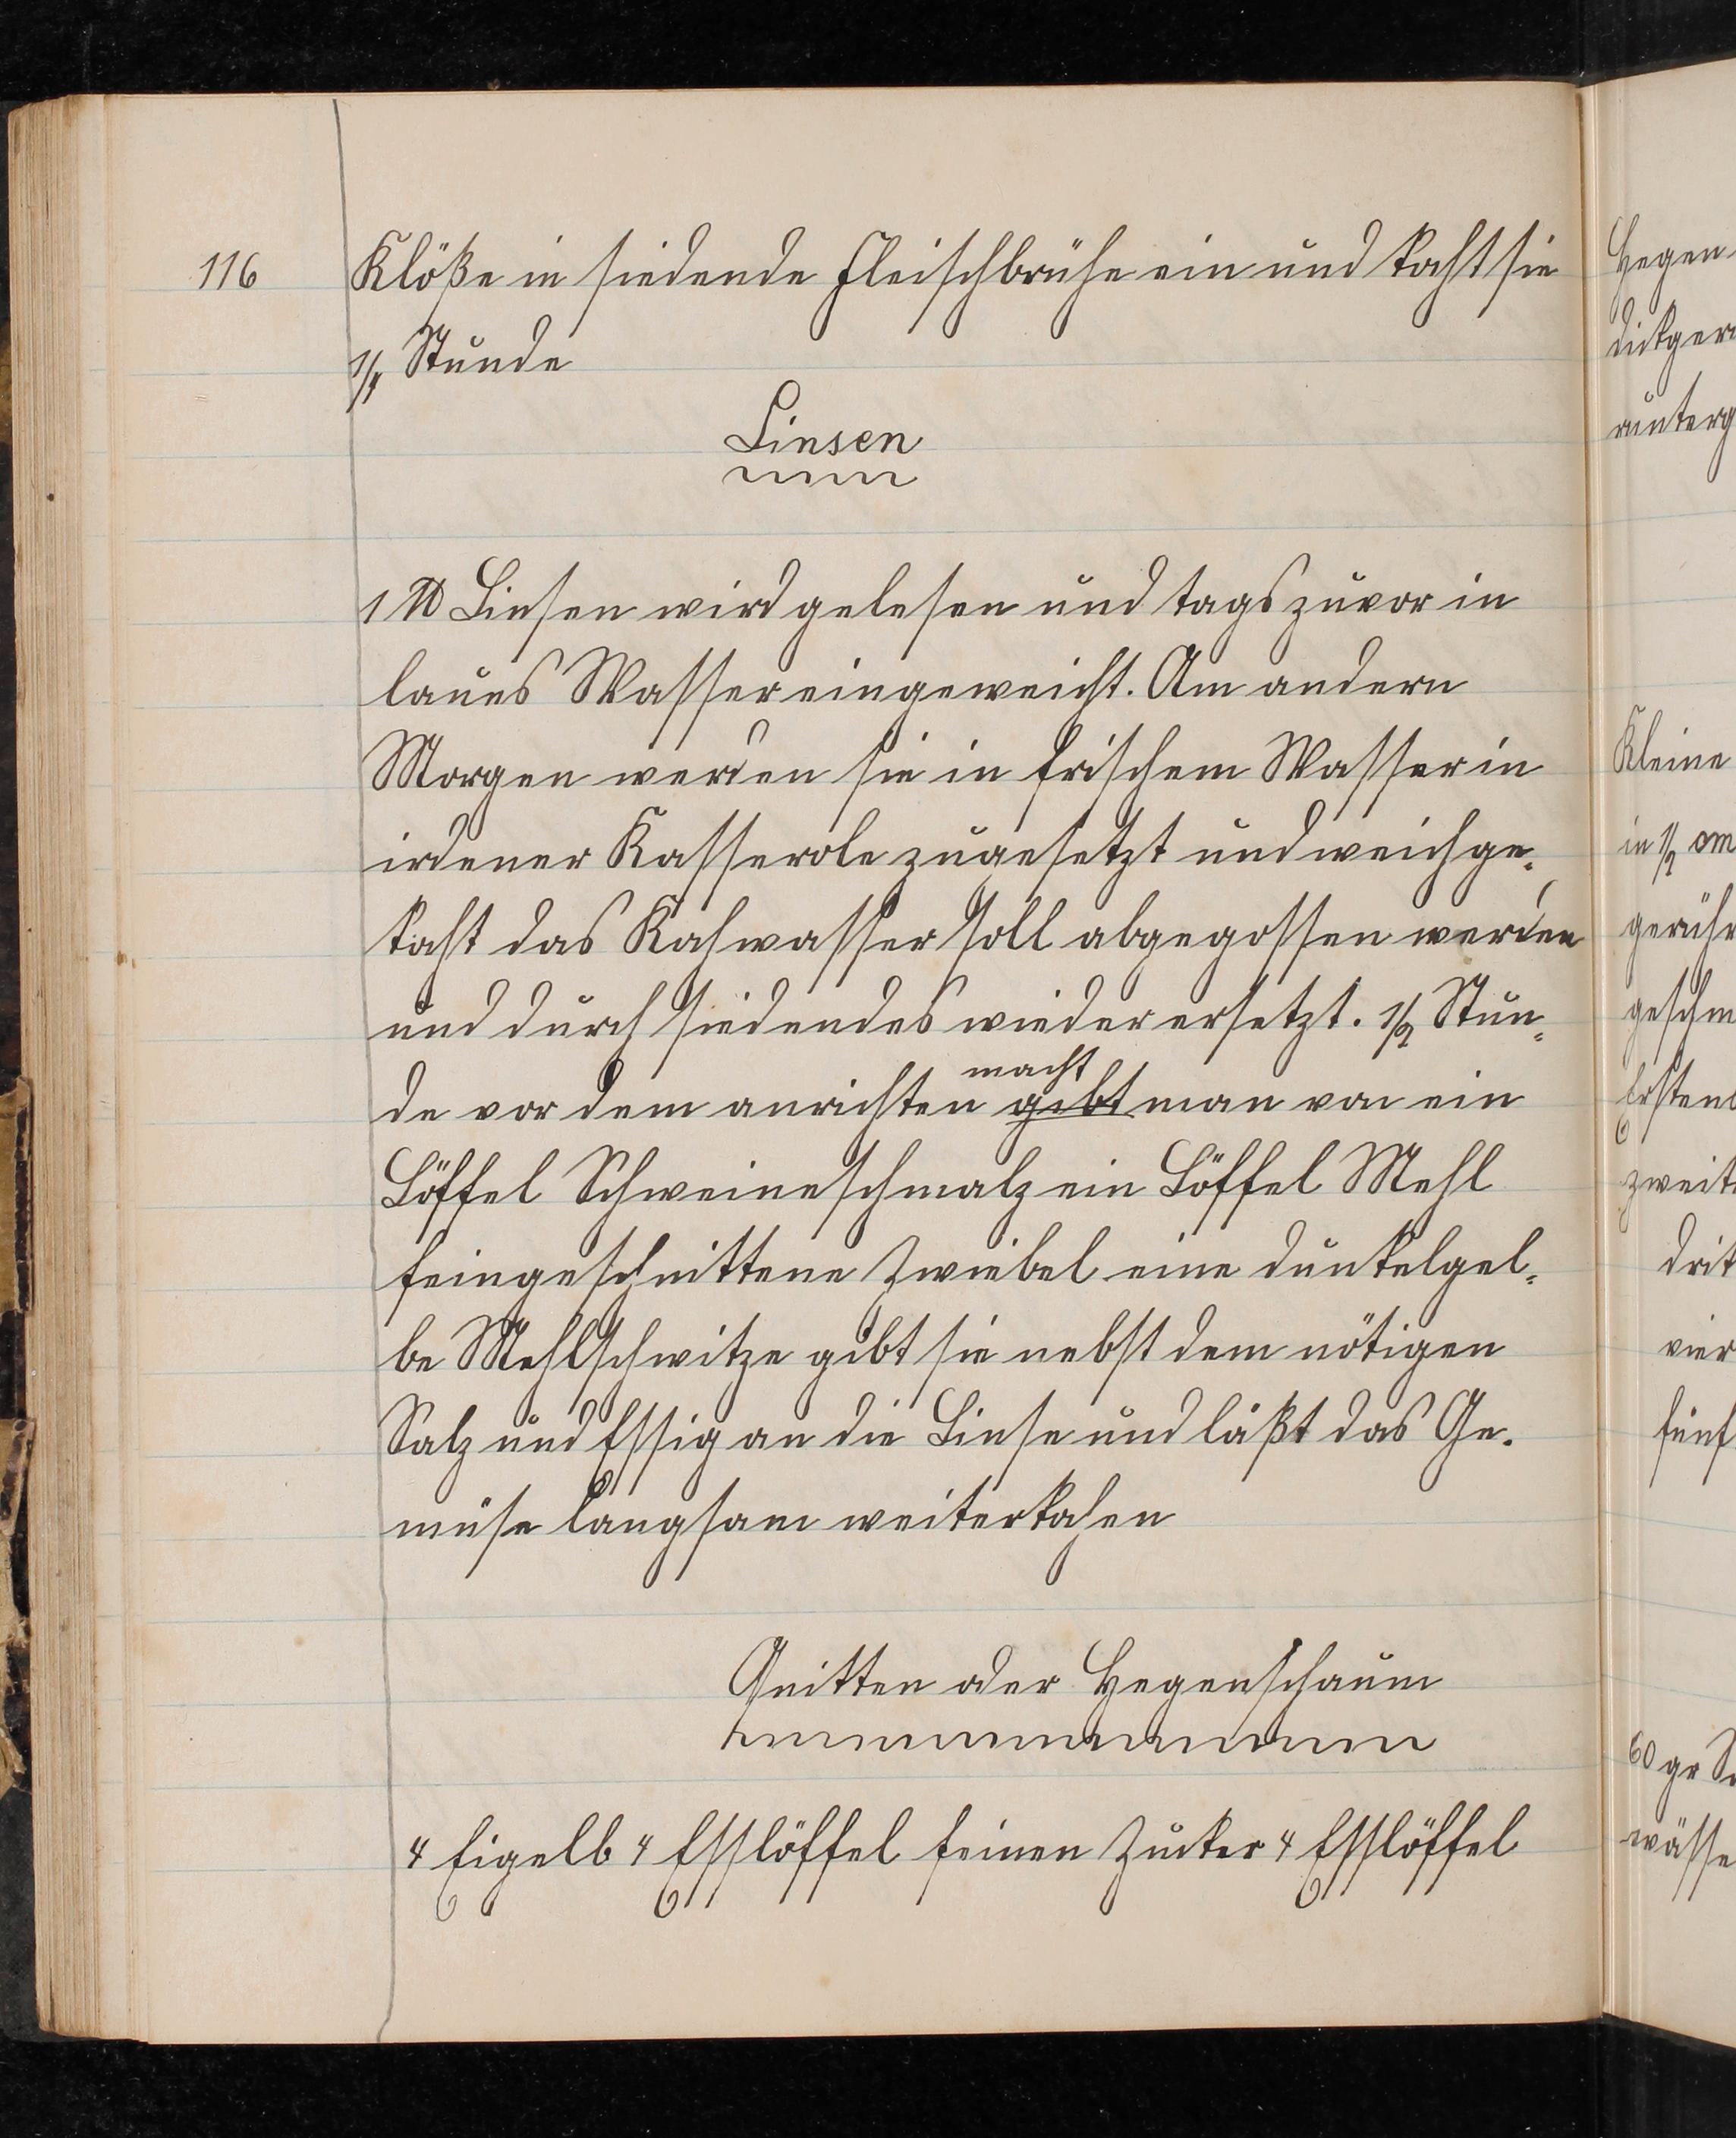 116
Klöße in siedende Fleischbrühe ein und kocht sie
1/4 Stunde
Linsen
1 ℔ Linsen wird gelesen und tags zuvor in
laues Wasser eingeweicht. Am andern
Morgen werden sie in frischem Wasser in
irdener Kasserole zugesetzt und weichge-
kocht das Kochwasser soll abgegossen werden
und durch siedendes wieder ersetzt. 1/2 Stun-
macht
de vor dem anrichten gibt man von ein
Löffel Schweineschmalz ein Löffel Mehl
feingeschnittene Zwiebel eine dunkelgel-
be Mehlschwitze gibt sie nebst dem nötigen
Salz und Essig an die Linse und läßt das Ge-
müse langsam weiterkochen
Quitten oder Hegenschaum
4 Eigelb 4 Esslöffel feinen Zucker 4 Esslöffel
Hegen
zweit
drit
vier
fünf
Kleine
in 1/2
60 gr